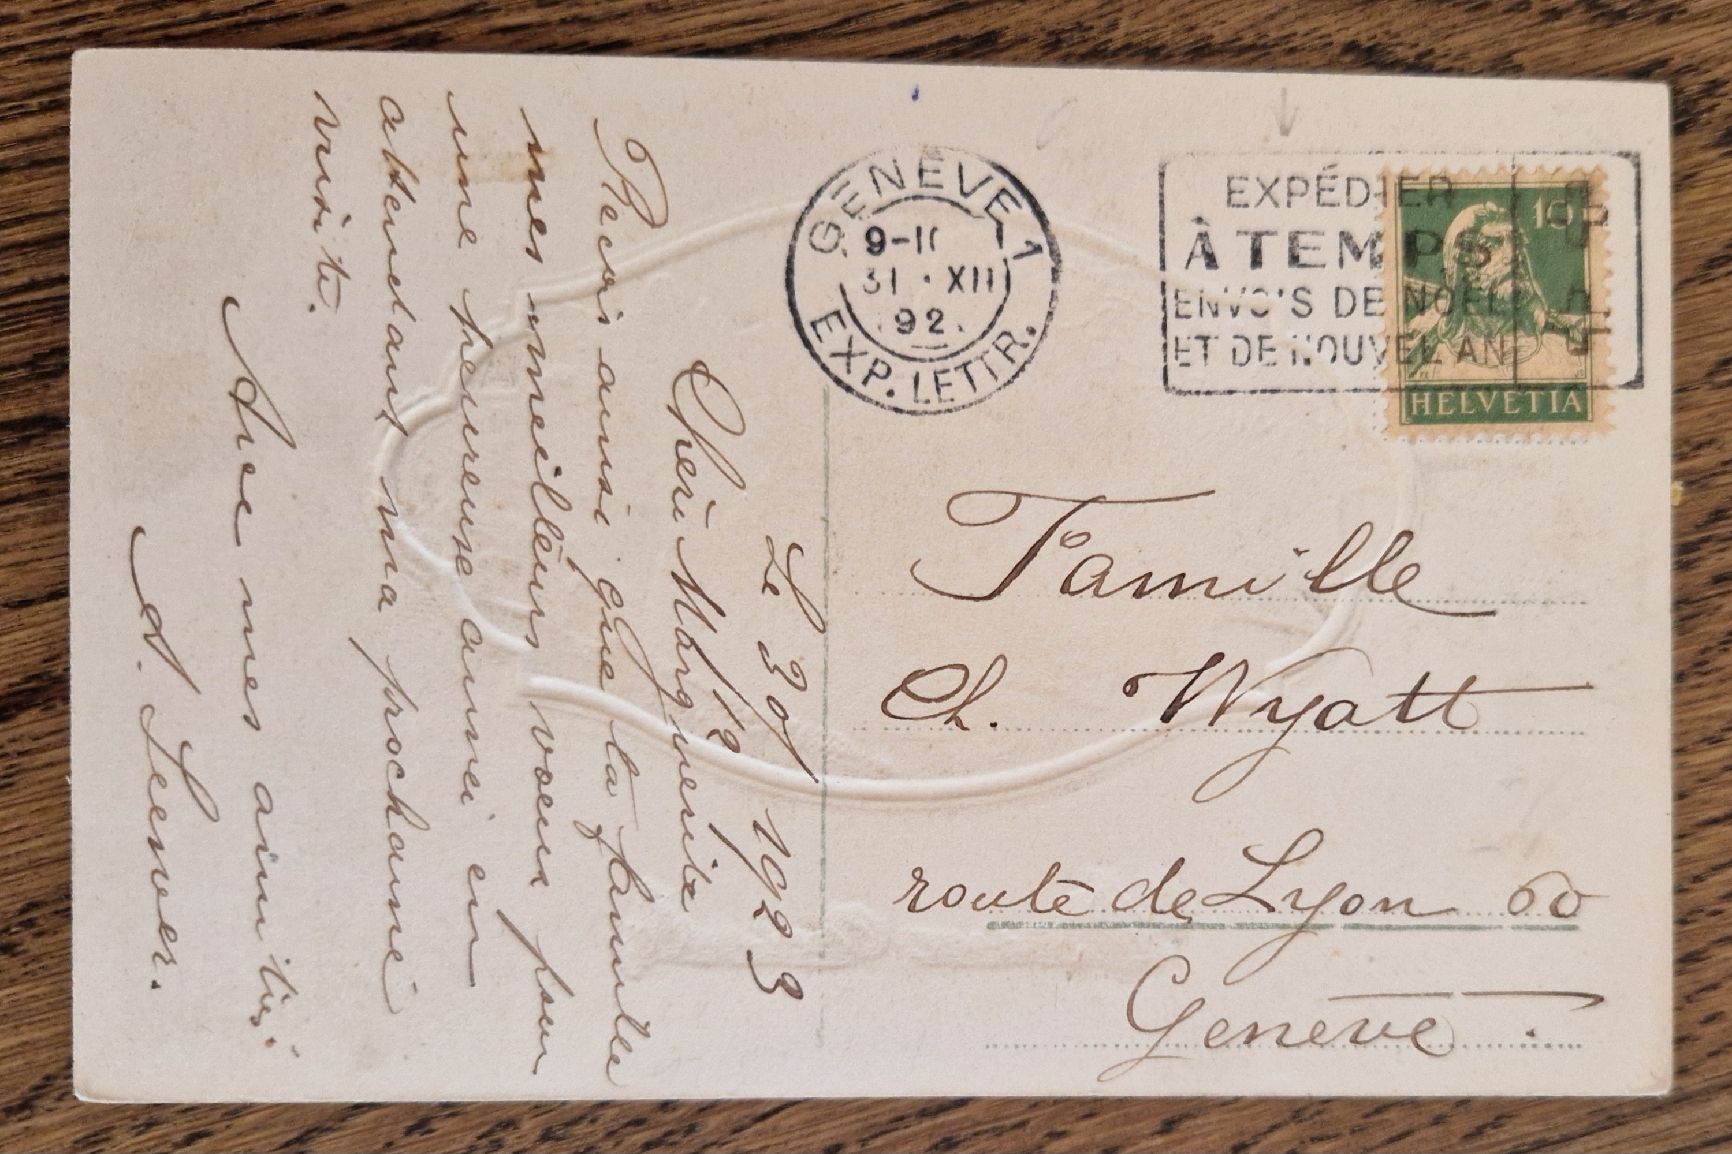 Le 30/12 1923
Chéri Marguerite
Reçois ainsi que ta famille
mes meilleurs voeux pour
une heureuse année en
attendant ma prochaine
visite.
Avec mes amitiés.
A.
GENÈVE 1
9-10
31 · XII
92
EXP. LETTR.
EXPÉDIER
À TEMPS
ENVOIS DE NOËL
ET DE NOUVEL AN
10
HELVETIA
Famille
Ch. Wyatt
route de Lyon 60
Genève.